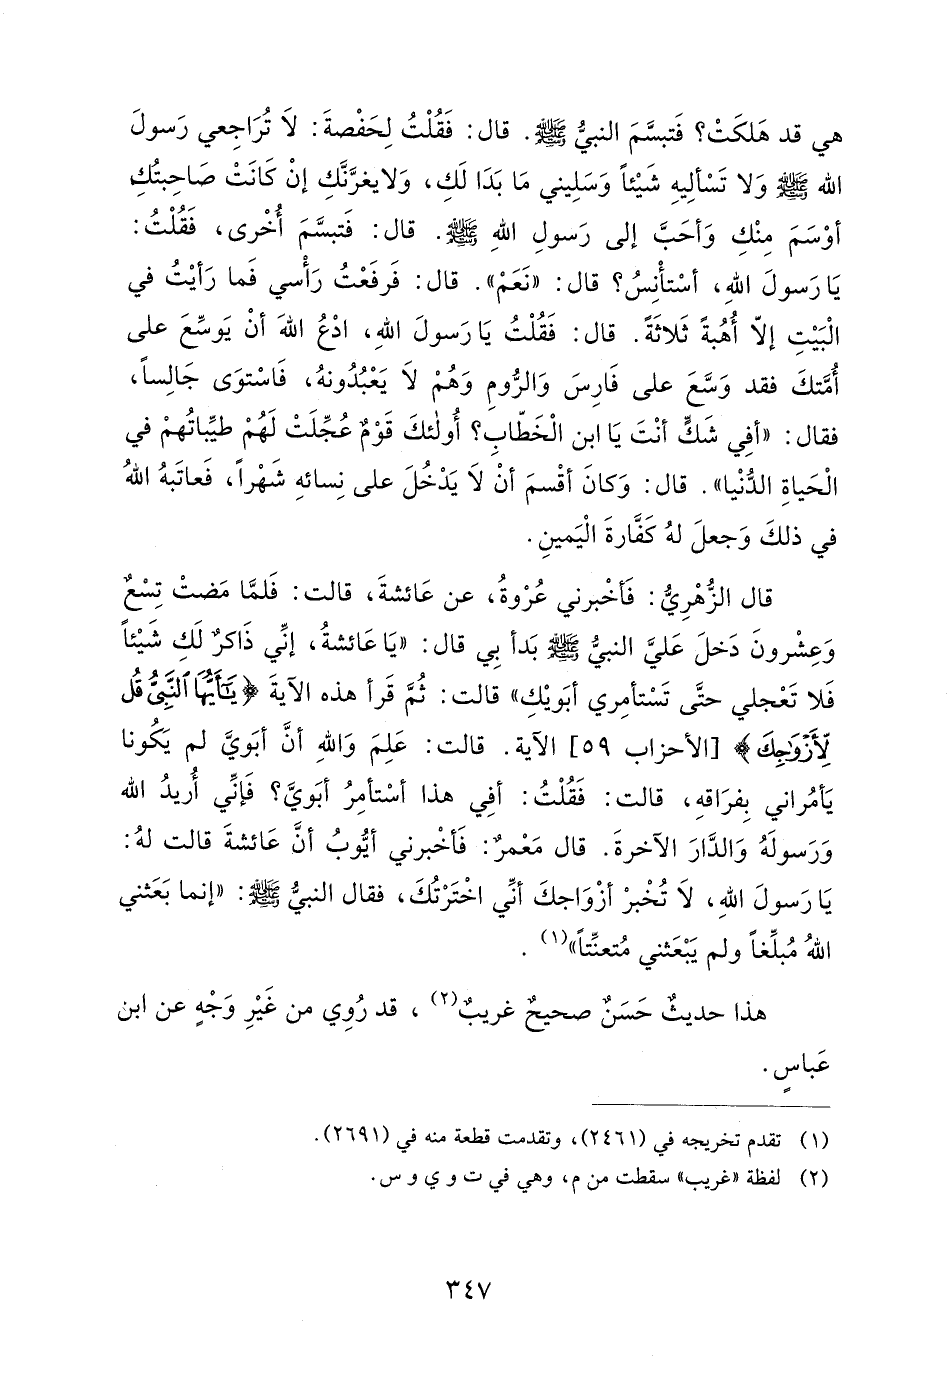 هي قد هَلكَتْ؟ فَتبسَّمَ النبيُّ ﷺ. قال: فَقُلْتُ لِحَفْصةَ: لاَ تُرَاجعي رَسولَ
الله ﷺ وَلا تَسْأليهِ شَيْئاً وَسَلِيني مَا بَدَا لَكِ، وَلايغرَّنَّكِ إنْ كَانَتْ صَاحِبتُكِ
أوْسَمَ مِنْكِ وَأحَبَّ إلى رَسولِ اللهِ ﷺ. قال: فَتبسَّمَ أُخْرى، فَقُلْتُ:
يَا رَسولَ اللهِ، أسْتأنِسُ؟ قال: «نَعَمْ». قال: فَرفَعْتُ رَأْسي فَما رَأيْتُ في
الْبَيْتِ إلاّ أُهُبةً ثَلاثَةً. قال: فَقُلْتُ يَا رَسولَ اللهِ، ادْعُ اللهَ أنْ يَوسِّعَ على
أُمَّتكَ فقد وَسَّعَ على فَارِسَ وَالرُّومِ وَهُمْ لَا يَعْبُدُونهُ، فَاسْتوَى جَالِساً،
فقال: «أفِي شَكٍّ أنْتَ يَا ابن الْخَطّابِ؟ أُولٰئكَ قَوْمٌ عُجِّلَتْ لَهُمْ طيِّباتُهمْ في
الْحَياةِ الدُّنْيا». قال: وَكانَ أقْسمَ أنْ لَا يَدْخُلَ على نِسائهِ شَهْراً، فَعاتَبهُ اللهُ
في ذلكَ وَجعلَ لهُ كَفَّارةَ الْيَمينِ.
قال الزُّهْرِيُّ: فَأخْبرني عُرْوةُ، عن عَائشةَ، قالت: فَلمَّا مَضتْ تِسْعٌ
وَعِشْرونَ دَخلَ عَليَّ النبيُّ ﷺ بَدأ بِي قال: «يَا عَائشةُ، إنِّي ذَاكرٌ لَكِ شَيْئاً
فَلا تَعْجلي حتَّى تَسْتأمِري أبَويْكِ» قالت: ثُمَّ قَرأ هذه الآيةَ ﴿يَٰٓأَيُّهَا ٱلنَّبِىُّ قُل
لِّأَزْوَٰجِكَ﴾ [الأحزاب ٥٩] الآية. قالت: عَلِمَ وَاللهِ أنَّ أبَويَّ لم يَكُونا
يَأمُراني بِفرَاقهِ، قالت: فَقُلْتُ: أفِي هذا أسْتأمِرُ أبَويَّ؟ فَإنِّي أُريدُ الله
وَرَسولَهُ وَالدَّارَ الآخرةَ. قال مَعْمرٌ: فَأخْبرني أيُّوبُ أنَّ عَائشةَ قالت لهُ:
يَا رَسولَ اللهِ، لَا تُخْبرْ أزْوَاجكَ أنِّي اخْتَرْتُكَ، فقال النبيُّ ﷺ: «إنما بَعَثني
اللهُ مُبلِّغاً ولم يَبْعَثني مُتعنِّتاً»(١).
هذا حديثٌ حَسَنٌ صحيحٌ غريبٌ(٢)، قد رُوِي من غَيْرِ وَجْهٍ عن ابن
عَباسٍ.
(١) تقدم تخريجه في (٢٤٦١)، وتقدمت قطعة منه في (٢٦٩١).
(٢) لفظة «غريب» سقطت من م، وهي في ت و ي و س.
٣٤٧